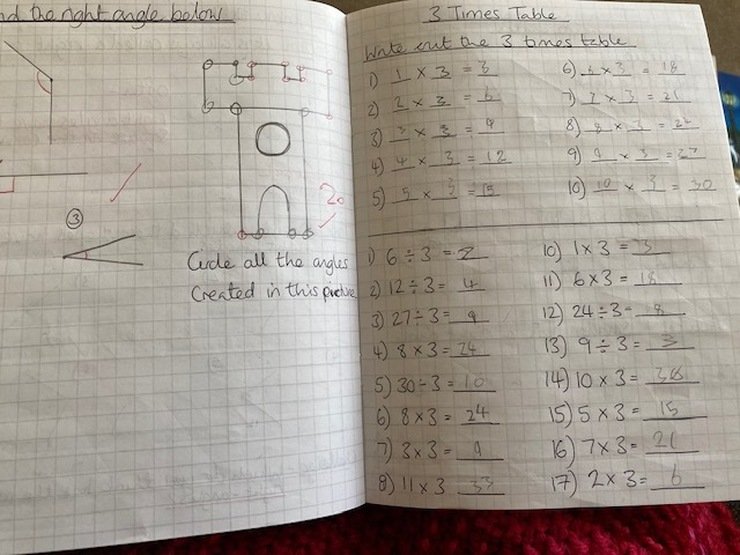 nd the right angle below
③
20
Circle all the angles
Created in this picture
3 Times Table
Write out the 3 times table
1) 1 × 3 = 3
2) 2 × 3 = 6
3) 3 × 3 = 9
4) 4 × 3 = 12
5) 5 × 3 = 15
6) 6 × 3 = 18
7) 7 × 3 = 21
8) 8 × 3 = 24
9) 9 × 3 = 27
10) 10 × 3 = 30
1) 6 ÷ 3 = 2
2) 12 ÷ 3 = 4
3) 27 ÷ 3 = 9
4) 8 × 3 = 24
5) 30 ÷ 3 = 10
6) 8 × 3 = 24
7) 3 × 3 = 9
8) 11 × 3 33
10) 1 × 3 = 3
11) 6 × 3 = 18
12) 24 ÷ 3 = 8
13) 9 ÷ 3 = 3
14) 10 × 3 = 30
15) 5 × 3 = 15
16) 7 × 3 = 21
17) 2 × 3 = 6